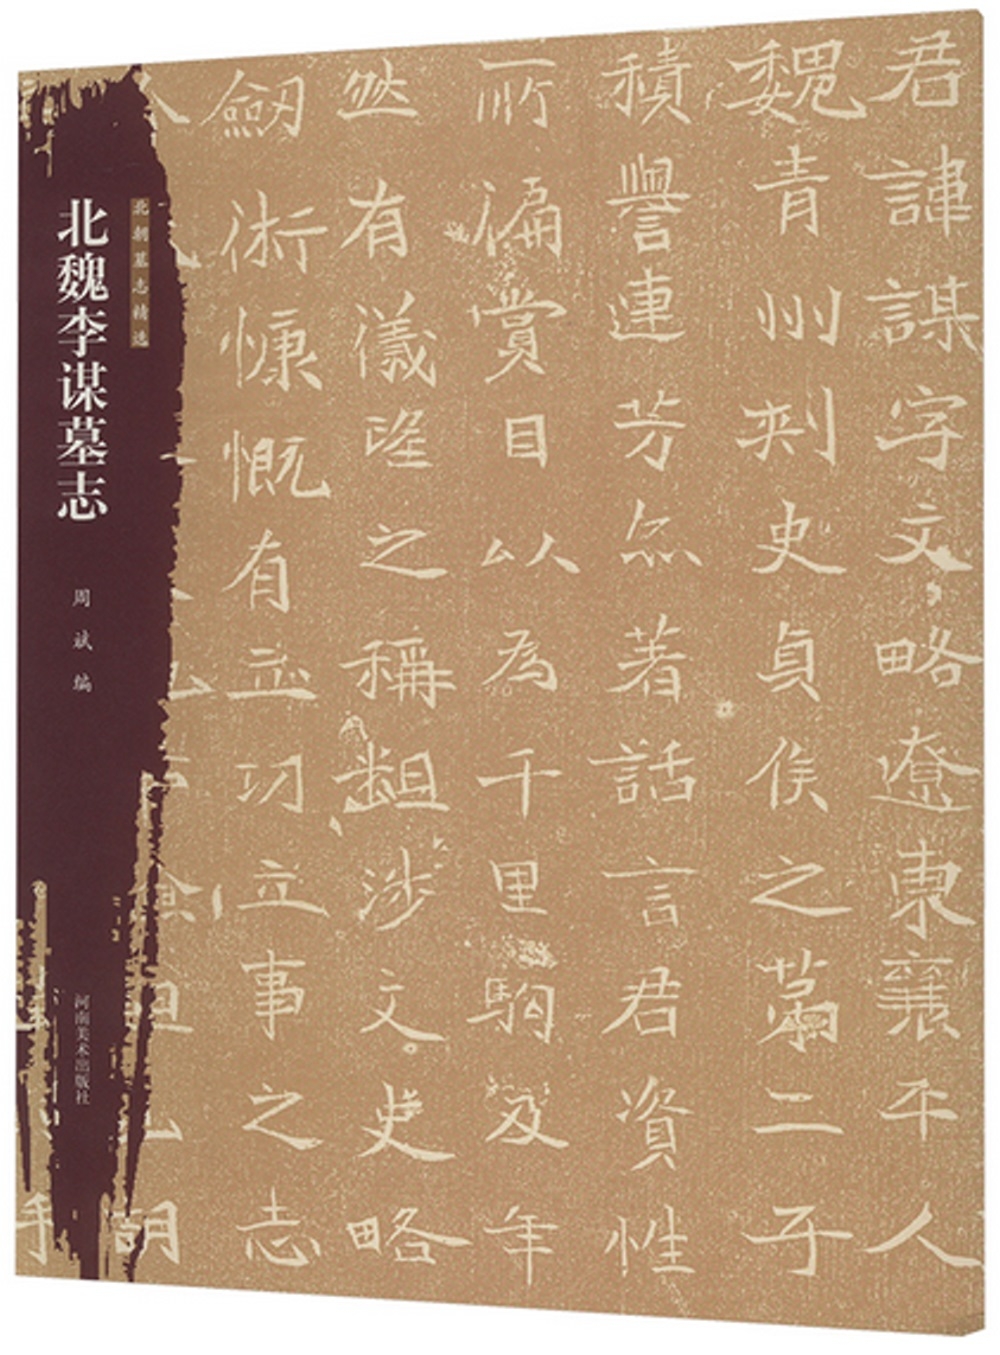 北魏李谋墓志
北朝墓志精选
周斌 编
河南美术出版社
君諱謀字文略遼東襄平人
魏青州刺史貞侯之第二子
積譽連芳㒵著話言君資性
所漏賞目以為千里駒年
然有儀望之稱龃涉文史略
劒術慷慨有立功立事之志